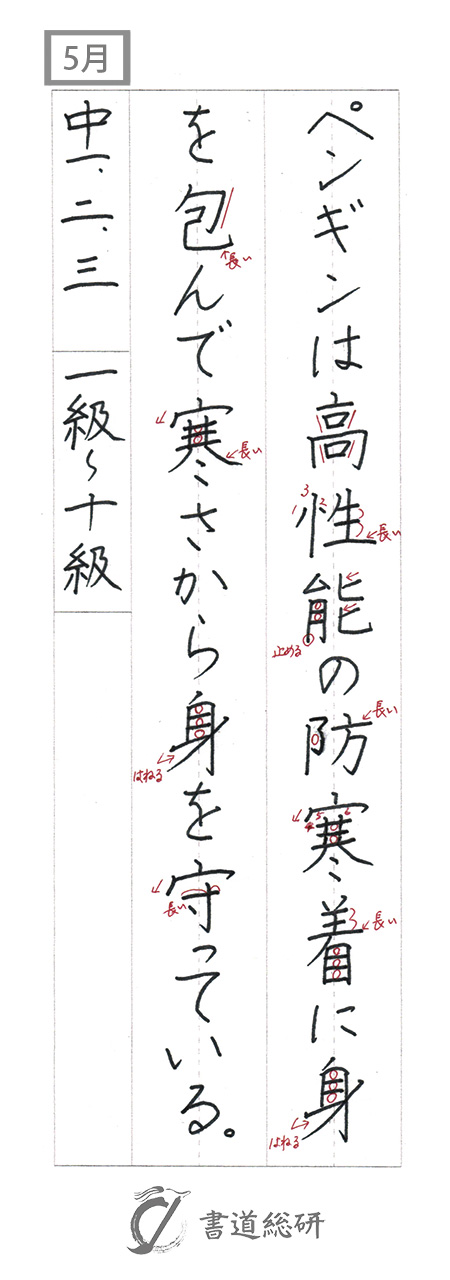 5月
ペンギンは高性能の防寒着に身
を包んで寒さから身を守っている。
中一、二、三 一級〜十級
長い
3
1
2
長い
止める
長い
4
5
6
長い
はねる
長い
長い
はねる
長い
書道総研